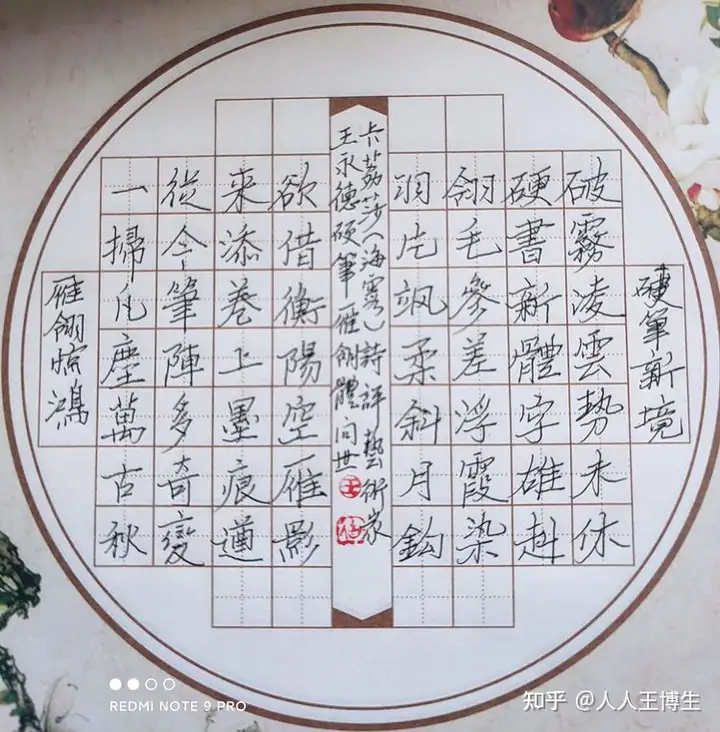 硬筆新境
破霧凌雲勢未休
硬書新體字雄赳
翎毛參差浮霞染
羽片飒柔斜月鈎
卡荔莎（海霧）詩評藝術家
王永德硬筆雁翎體问世
王
欲借衡陽空雁影
来添卷上墨痕遒
從今筆陣多奇變
一掃凡塵萬古秋
雁翎惊鴻
REDMI NOTE 9 PRO
知乎 @人人王博生